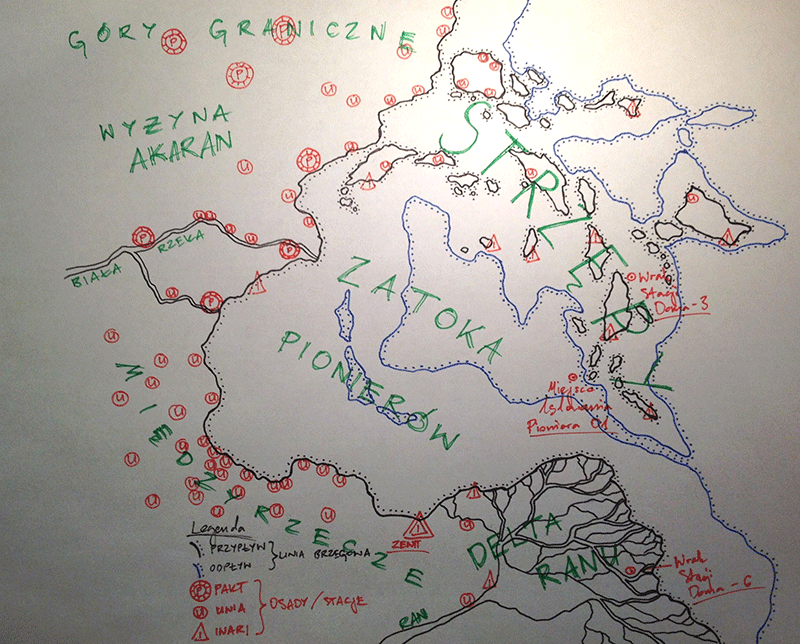 GÓRY GRANICZNE
WYŻYNA
AKARAN
STRZĘPY
BIAŁA RZEKA
ZATOKA
PIONIERÓW
Wrak
Stacji
Doma-3
Miejsce
Lądowania
Pioniera 01
MIĘDZYRZECZE
DELTA
RANU
RAN
ZENIT
Wrak
Stacji
Doma-6
Legenda
PRZYPŁYW
ODPŁYW
LINIA BRZEGOWA
P PAKT
U UNIA
I INARI
OSADY/STACJE